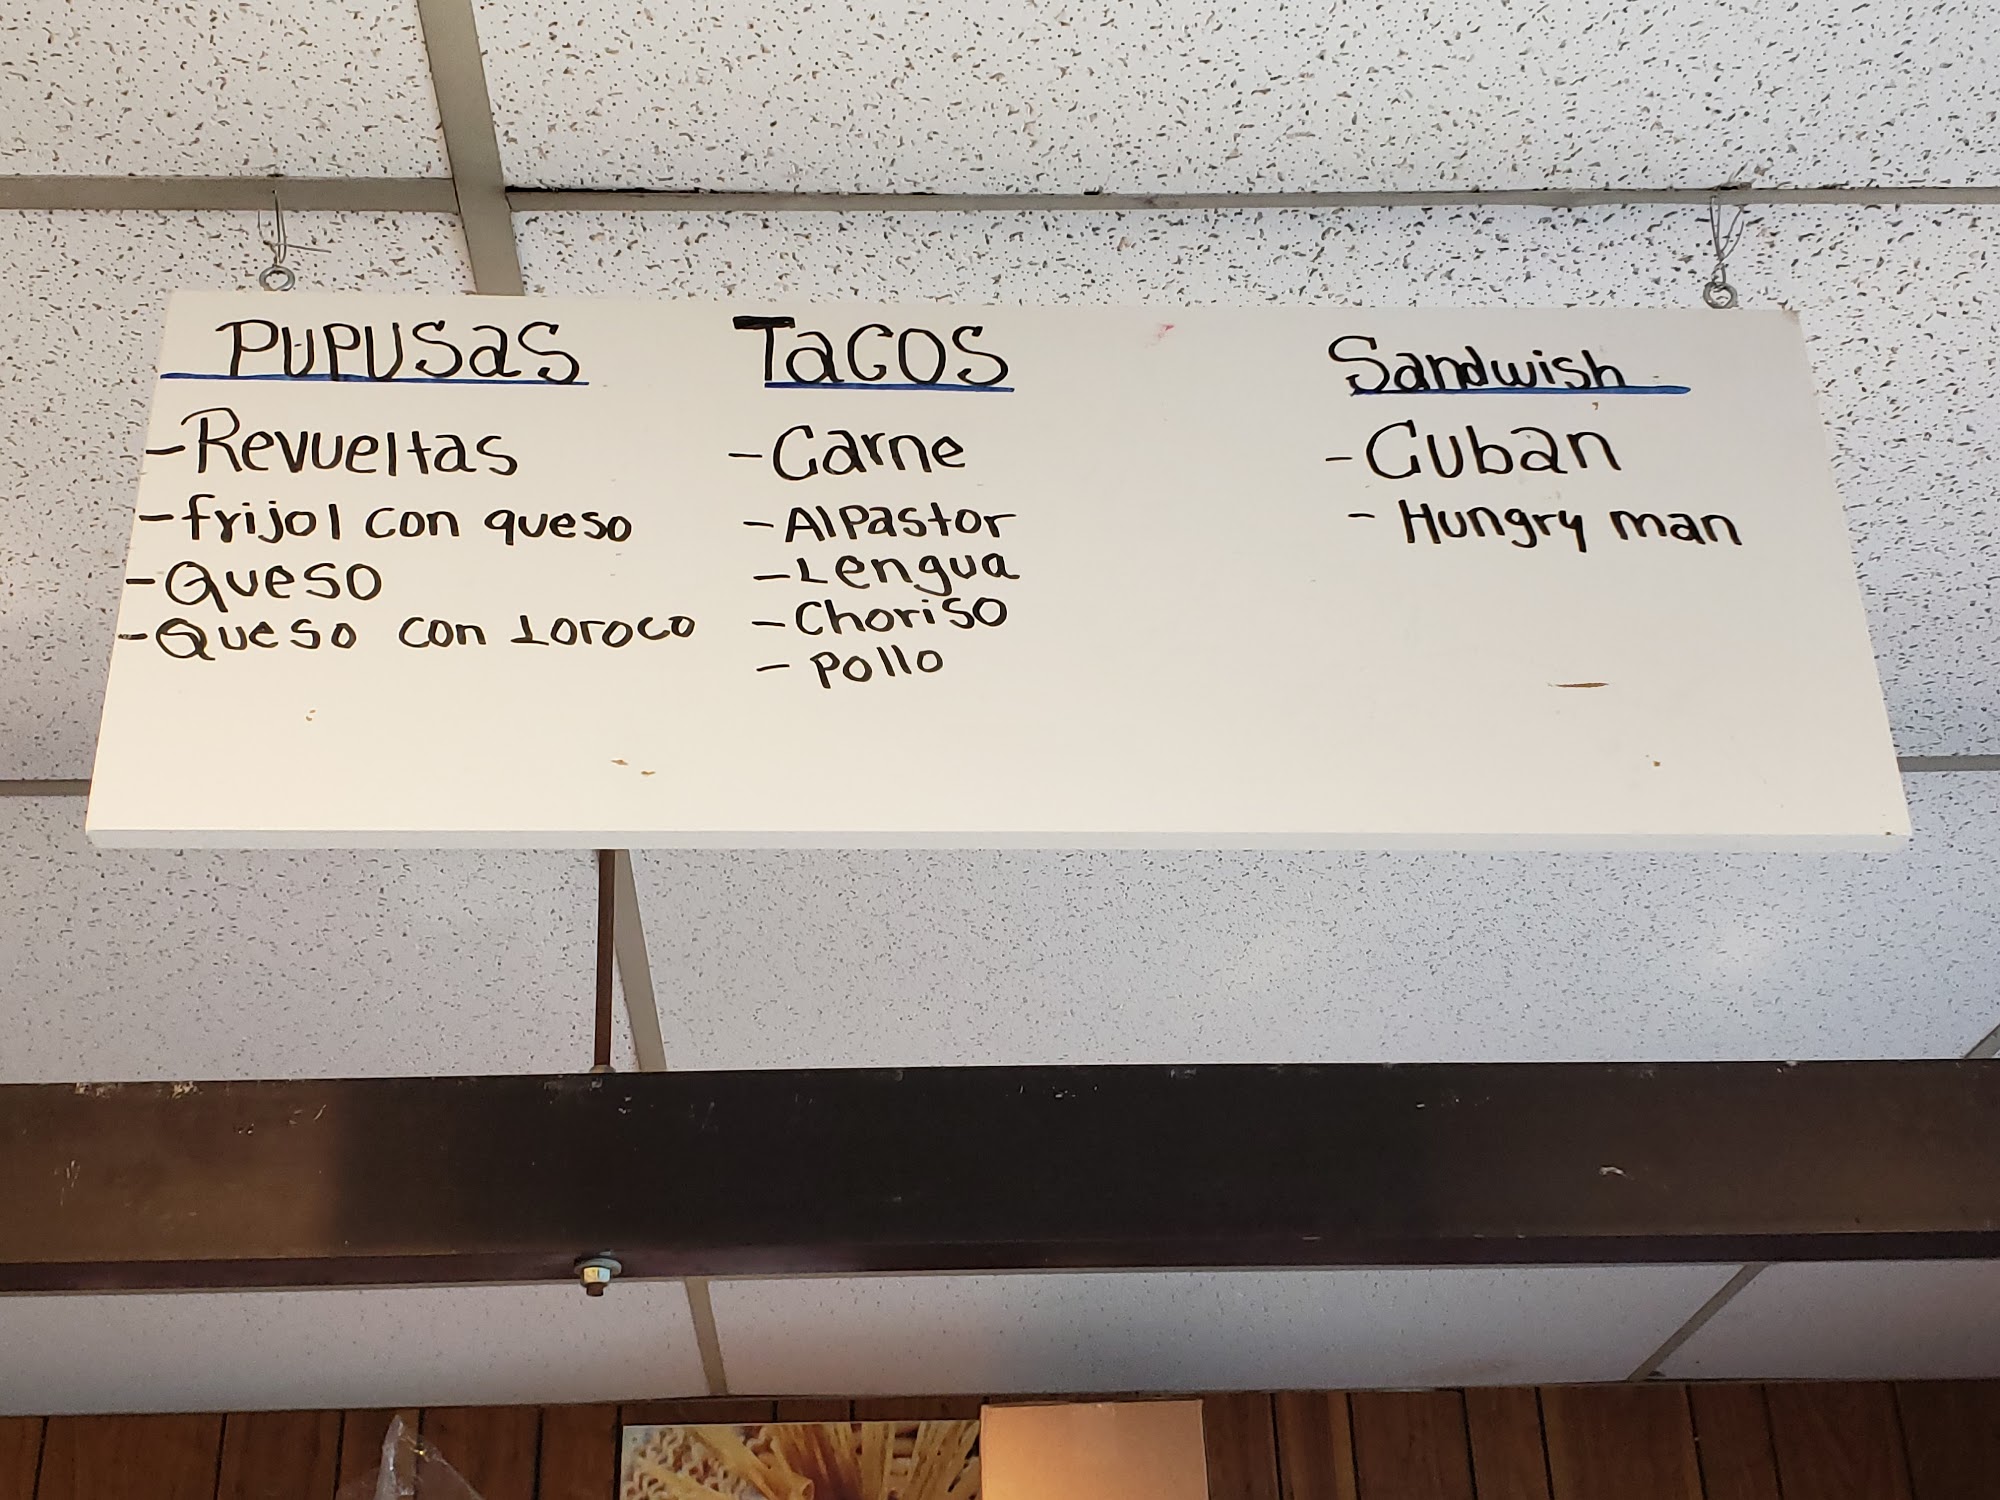 PUPUSas
- Revueltas
- frijol con queso
- Queso
- Queso con Loroco
Tacos
- Carne
- AlPastor
- Lengua
- Choriso
- Pollo
Sandwish
- Cuban
- Hungry man